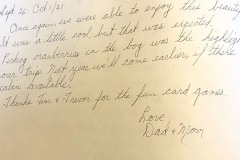 Sept 26- Oct 1/21
Once again we were able to enjoy this beauty
It was a little cool but that was expected.
Picking cranberries in the bog was the highlight
our trip. Next year we'll come earlier, if there
available.
Thanks Tim & Trevor for the fun card games.
Love
Dad & Mom